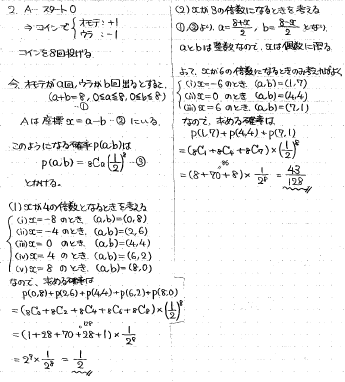 2. A… スタート 0
⇒ コインで { オモテ：+1
ウラ：-1
コインを8回投げる
今、オモテがa回、ウラがb回出るとすると、
(a+b=8, 0≤a≤8, 0≤b≤8)
…①
Aは座標 x=a-b …② にいる.
このようになる確率p(a,b)は
p(a,b) = ₈Cₐ(1/2)⁸ …③
とかける。
(1) xが4の倍数となるときを考える
(i) x=-8 のとき. (a,b)=(0,8)
(ii) x=-4 のとき. (a,b)=(2,6)
(iii) x=0 のとき. (a,b)=(4,4)
(iv) x=4 のとき. (a,b)=(6,2)
(v) x=8 のとき. (a,b)=(8,0)
なので、求める確率は
p(0,8)+p(2,6)+p(4,4)+p(6,2)+p(8,0)
=(₈C₀+₈C₂+₈C₄+₈C₆+₈C₈)×(1/2)⁸
=(1+28+70+28+1)×1/2⁸
128
=2⁷×1/2⁸ = 1/2
(2) xが3の倍数になるときを考える
①,②より. a=(8+x)/2, b=(8-x)/2 となり.
aとbは整数なので. xは偶数に限る.
よって、xが6の倍数になるときのみ考えればよく
(i) x=-6 のとき. (a,b)=(1,7)
(ii) x=0 のとき. (a,b)=(4,4)
(iii) x=6 のとき. (a,b)=(7,1)
なので、求める確率は.
p(1,7)+p(4,4)+p(7,1)
=(₈C₁+₈C₄+₈C₇)×(1/2)⁸
86
=(8+70+8)×1/2⁸ = 43/128